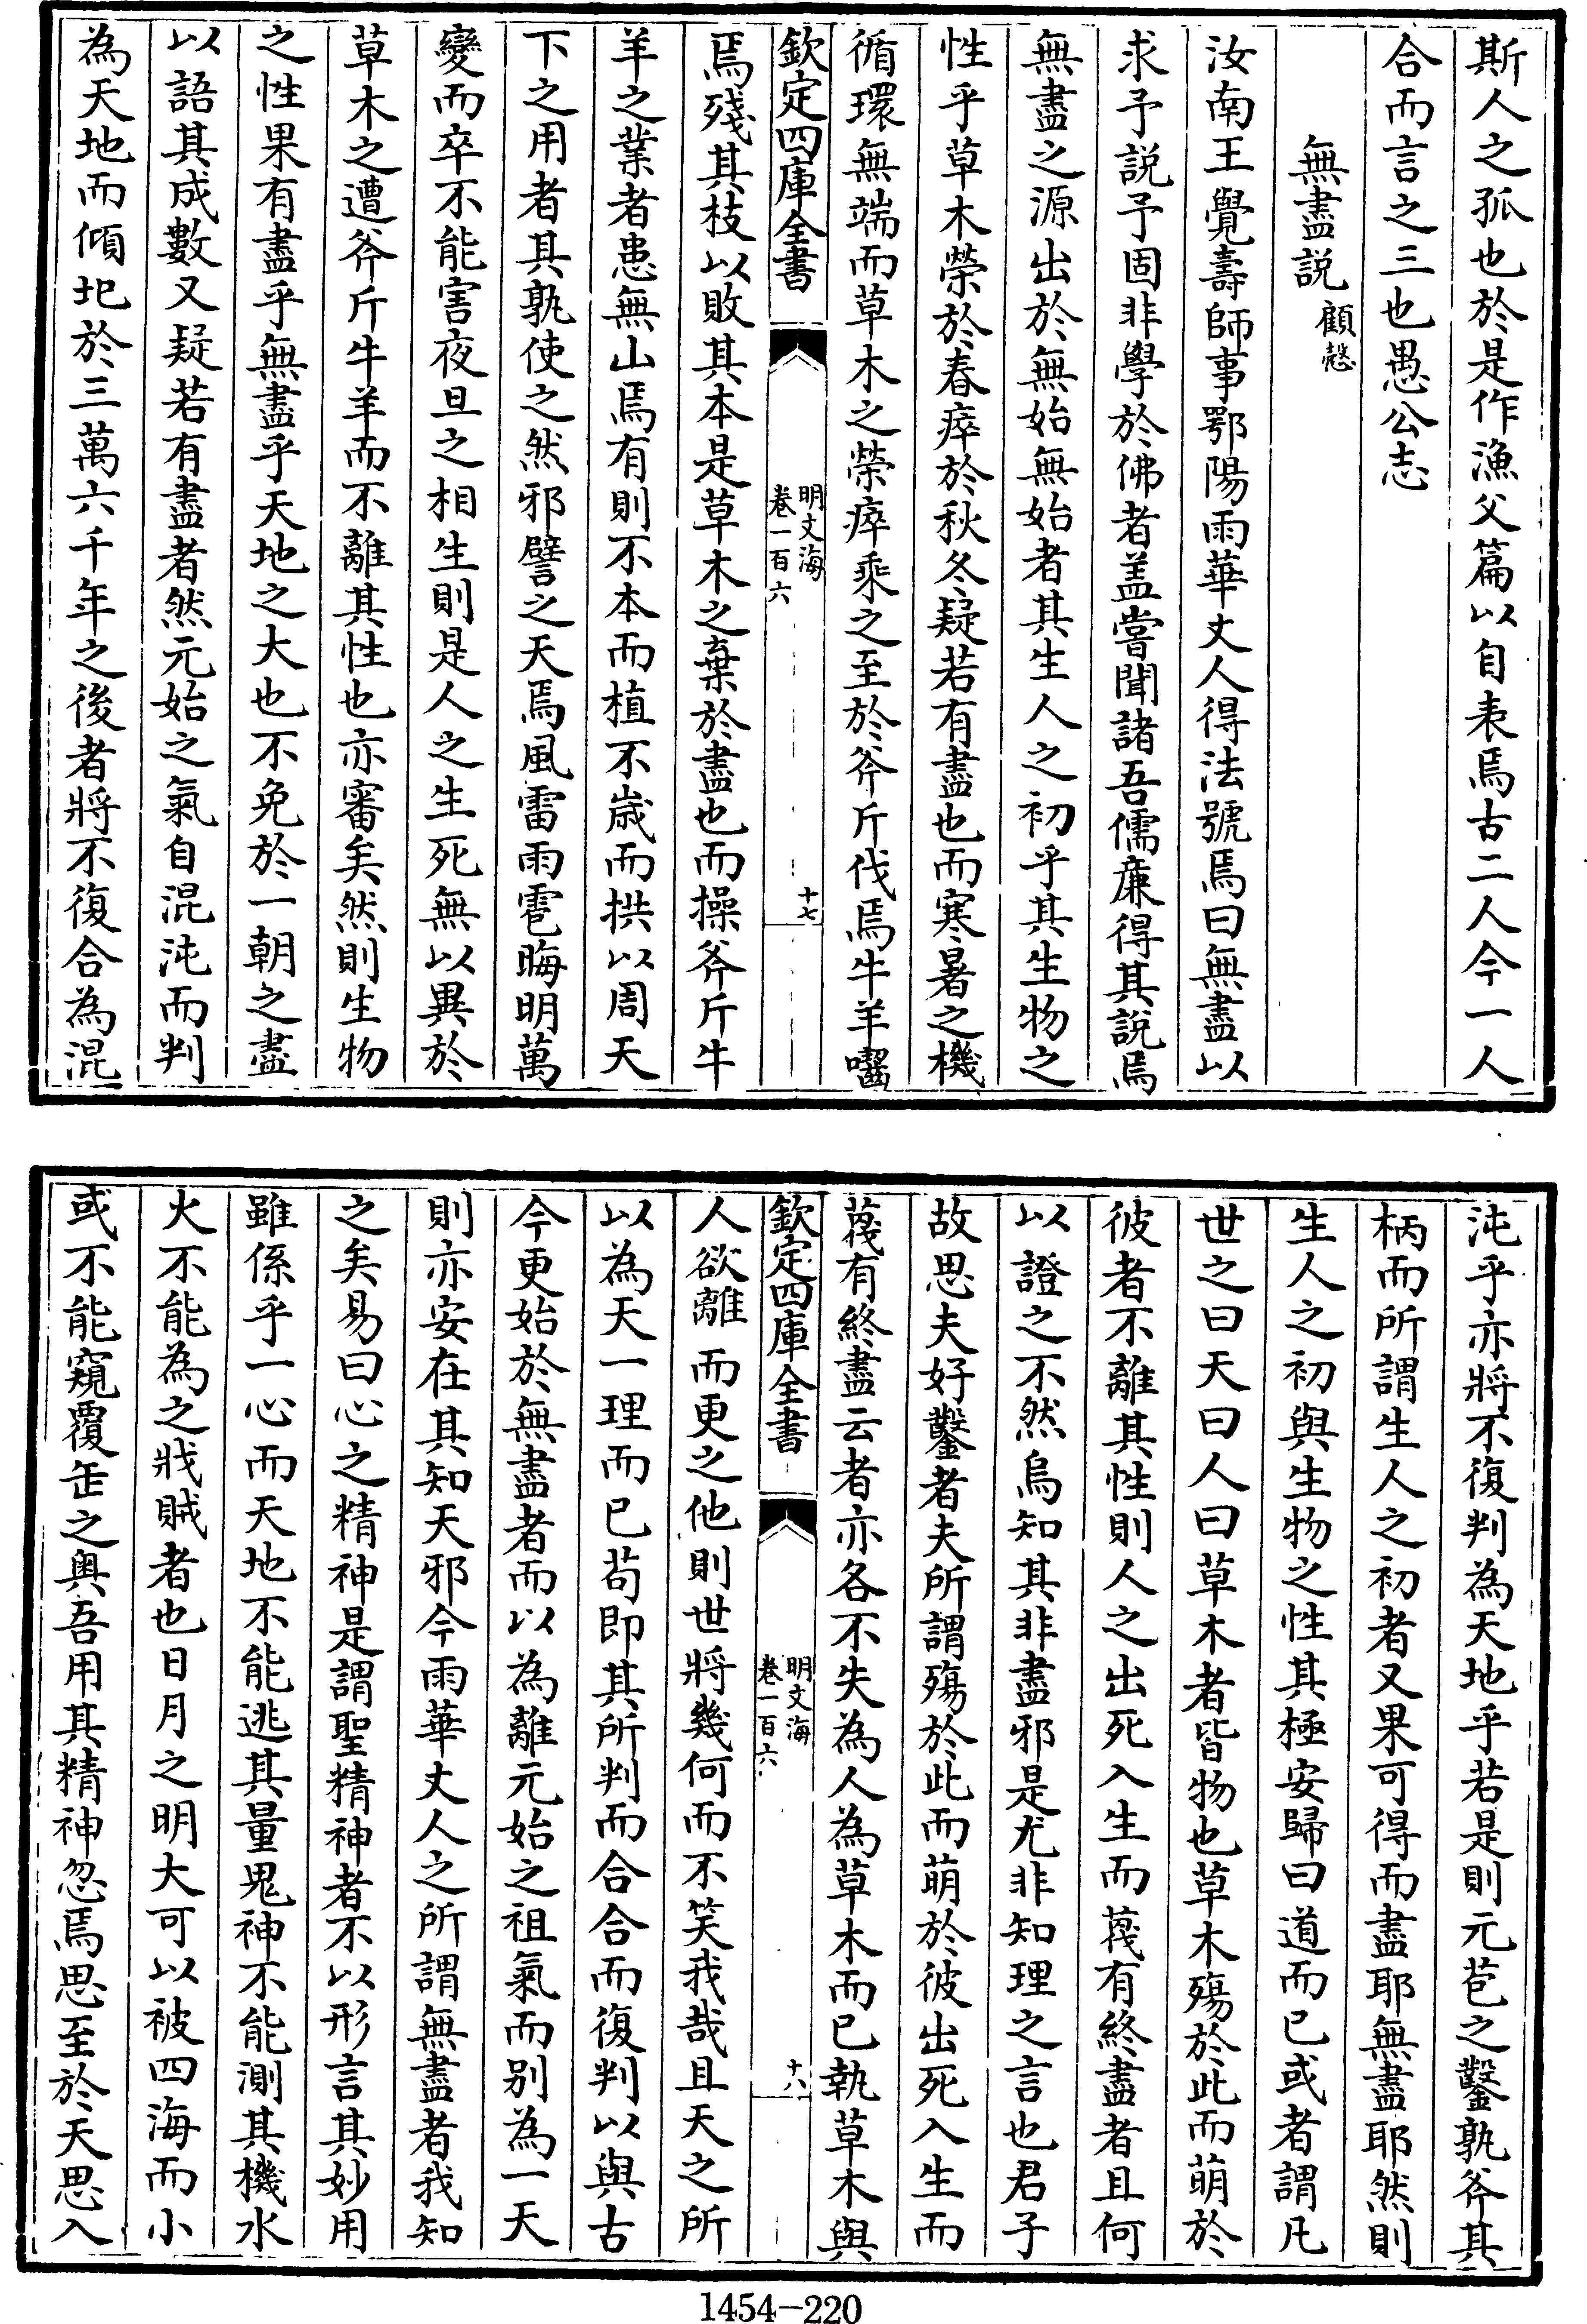 斯人之孤也於是作漁父篇以自表焉古二人今一人
合而言之三也愚公志
無盡説 顧慤
汝南王覺壽師事鄂陽雨華丈人得法號焉曰無盡以
求予説予固非學於佛者盖嘗聞諸吾儒廉得其說焉
無盡之源出於無始無始者其生人之初乎其生物之
性乎草木榮於春瘁於秋冬疑若有盡也而寒暑之機
循環無端而草木之榮瘁乘之至於斧斤伐焉牛羊囓
欽定四庫全書 明文海 卷一百六 十七
焉殘其枝以敗其本是草木之棄於盡也而操斧斤牛
羊之業者患無山焉有則不本而植不歲而拱以周天
下之用者其孰使之然邪譬之天焉風雷雨雹晦明萬
變而卒不能害夜旦之相生則是人之生死無以異於
草木之遭斧斤牛羊而不離其性也亦審矣然則生物
之性果有盡乎無盡乎天地之大也不免於一朝之盡
以語其成數又疑若有盡者然元始之氣自混沌而判
為天地而傾圯於三萬六千年之後者將不復合為混
沌乎亦將不復判為天地乎若是則元苞之鑿孰斧其
柄而所謂生人之初者又果可得而盡耶無盡耶然則
生人之初與生物之性其極安歸曰道而已或者謂凡
世之曰天曰人曰草木者皆物也草木殤於此而萌於
彼者不離其性則人之出死入生而蔑有終盡者且何
以證之不然烏知其非盡邪是尤非知理之言也君子
故思夫好鑿者夫所謂殤於此而萌於彼出死入生而
蔑有終盡云者亦各不失為人為草木而已執草木與
欽定四庫全書 明文海 卷一百六 十八
人欲離而更之他則世將幾何而不笑我哉且天之所
以為天一理而已苟即其所判而合合而復判以與古
今更始於無盡者而以為離元始之祖氣而别為一天
則亦安在其知天邪今雨華丈人之所謂無盡者我知
之矣易曰心之精神是謂聖精神者不以形言其妙用
雖係乎一心而天地不能逃其量鬼神不能測其機水
火不能為之戕賊者也日月之明大可以被四海而小
或不能窺覆缶之奥吾用其精神忽焉思至於天思入
1454-220